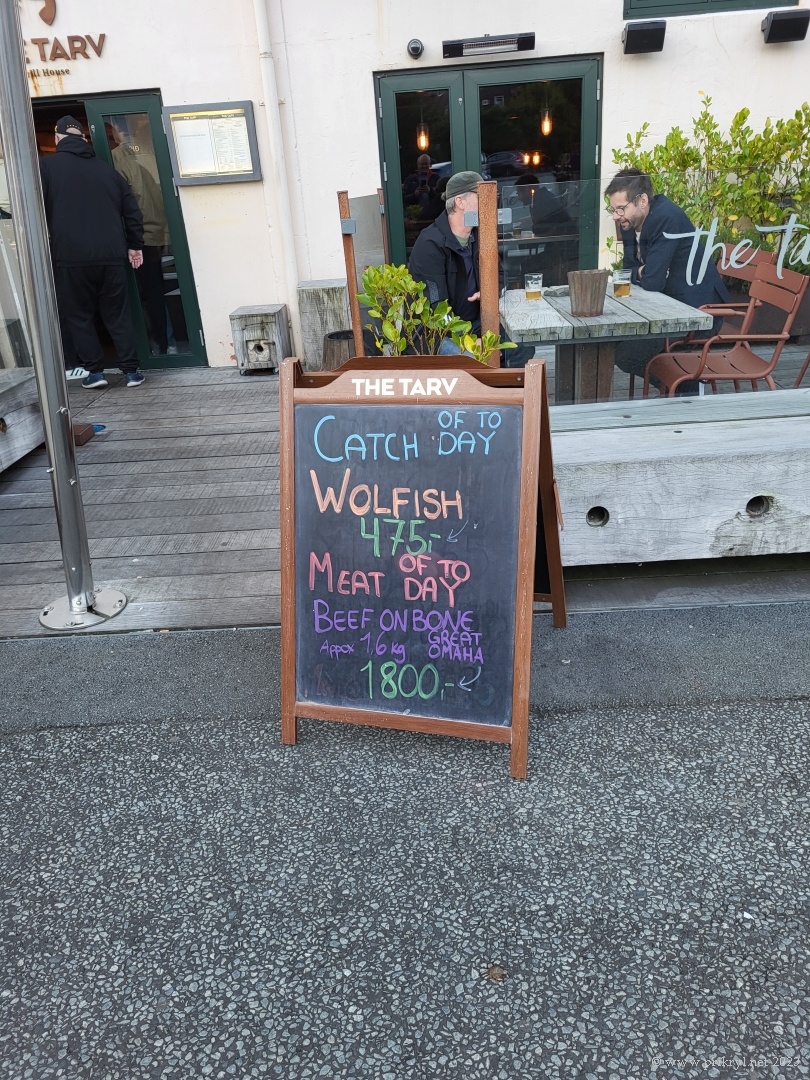 THE TARV
ll House
THE TARV
CATCH OF TO DAY
WOLFISH
475,-
MEAT OF TO DAY
BEEF ON BONE
Appox 1,6 kg GREAT OMAHA
1800,-
the Ta
© www.prikryl.net 2023